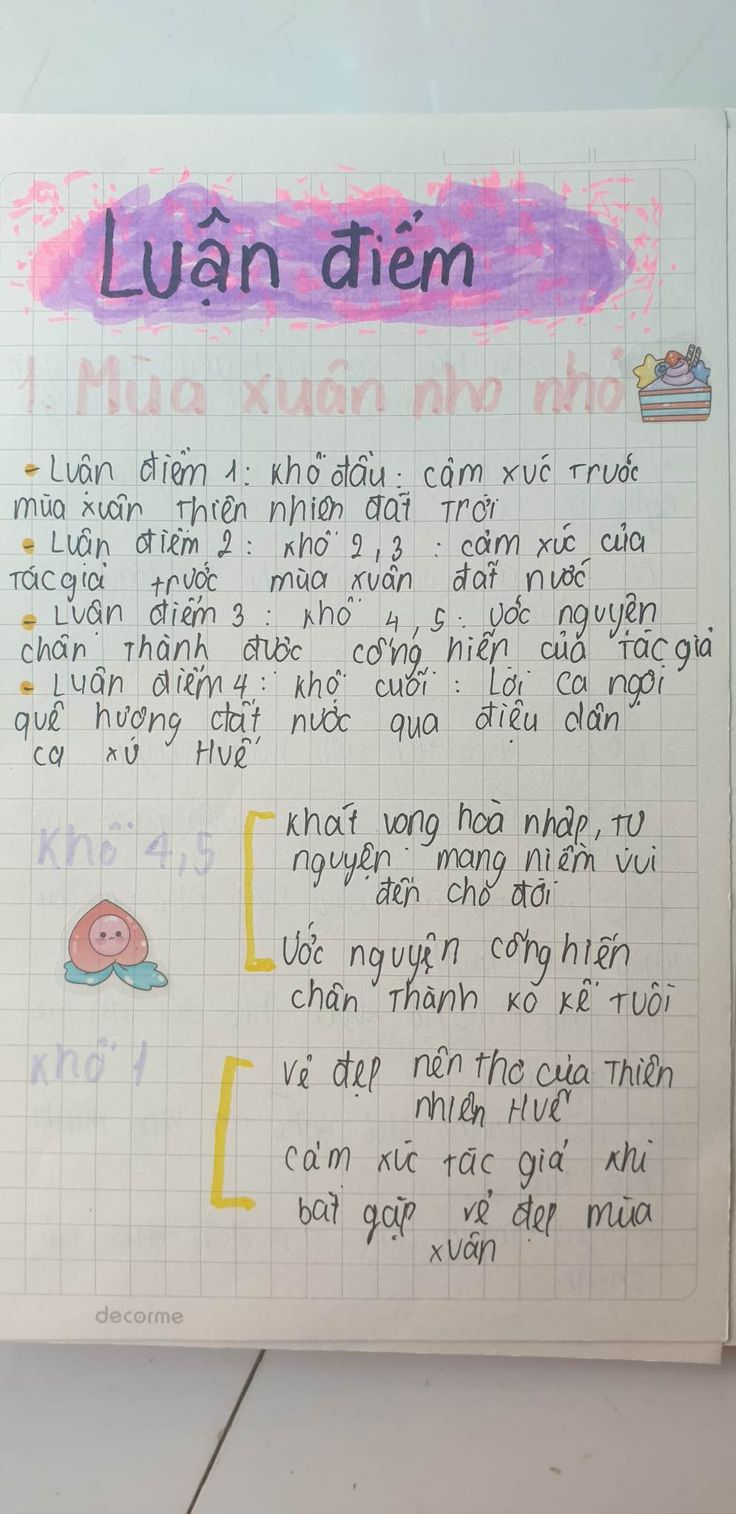 Luận điểm
1. Mùa xuân nho nhỏ
- Luận điểm 1: Khổ đầu: cảm xúc trước
mùa xuân thiên nhiên đất trời
- Luận điểm 2: Khổ 2, 3: cảm xúc của
tác giả trước mùa xuân đất nước
- Luận điểm 3: Khổ 4, 5: ước nguyện
chân thành được cống hiến của tác giả
- Luận điểm 4: Khổ cuối: Lời ca ngợi
quê hương đất nước qua điệu dân
ca xứ Huế
Khổ 4,5
Khát vọng hoà nhập, tự
nguyện mang niềm vui
đến cho đời
Ước nguyện cống hiến
chân thành ko kể tuổi
Khổ 1
vẻ đẹp nên thơ của thiên
nhiên Huế
cảm xúc tác giả khi
bắt gặp vẻ đẹp mùa
xuân
decorme